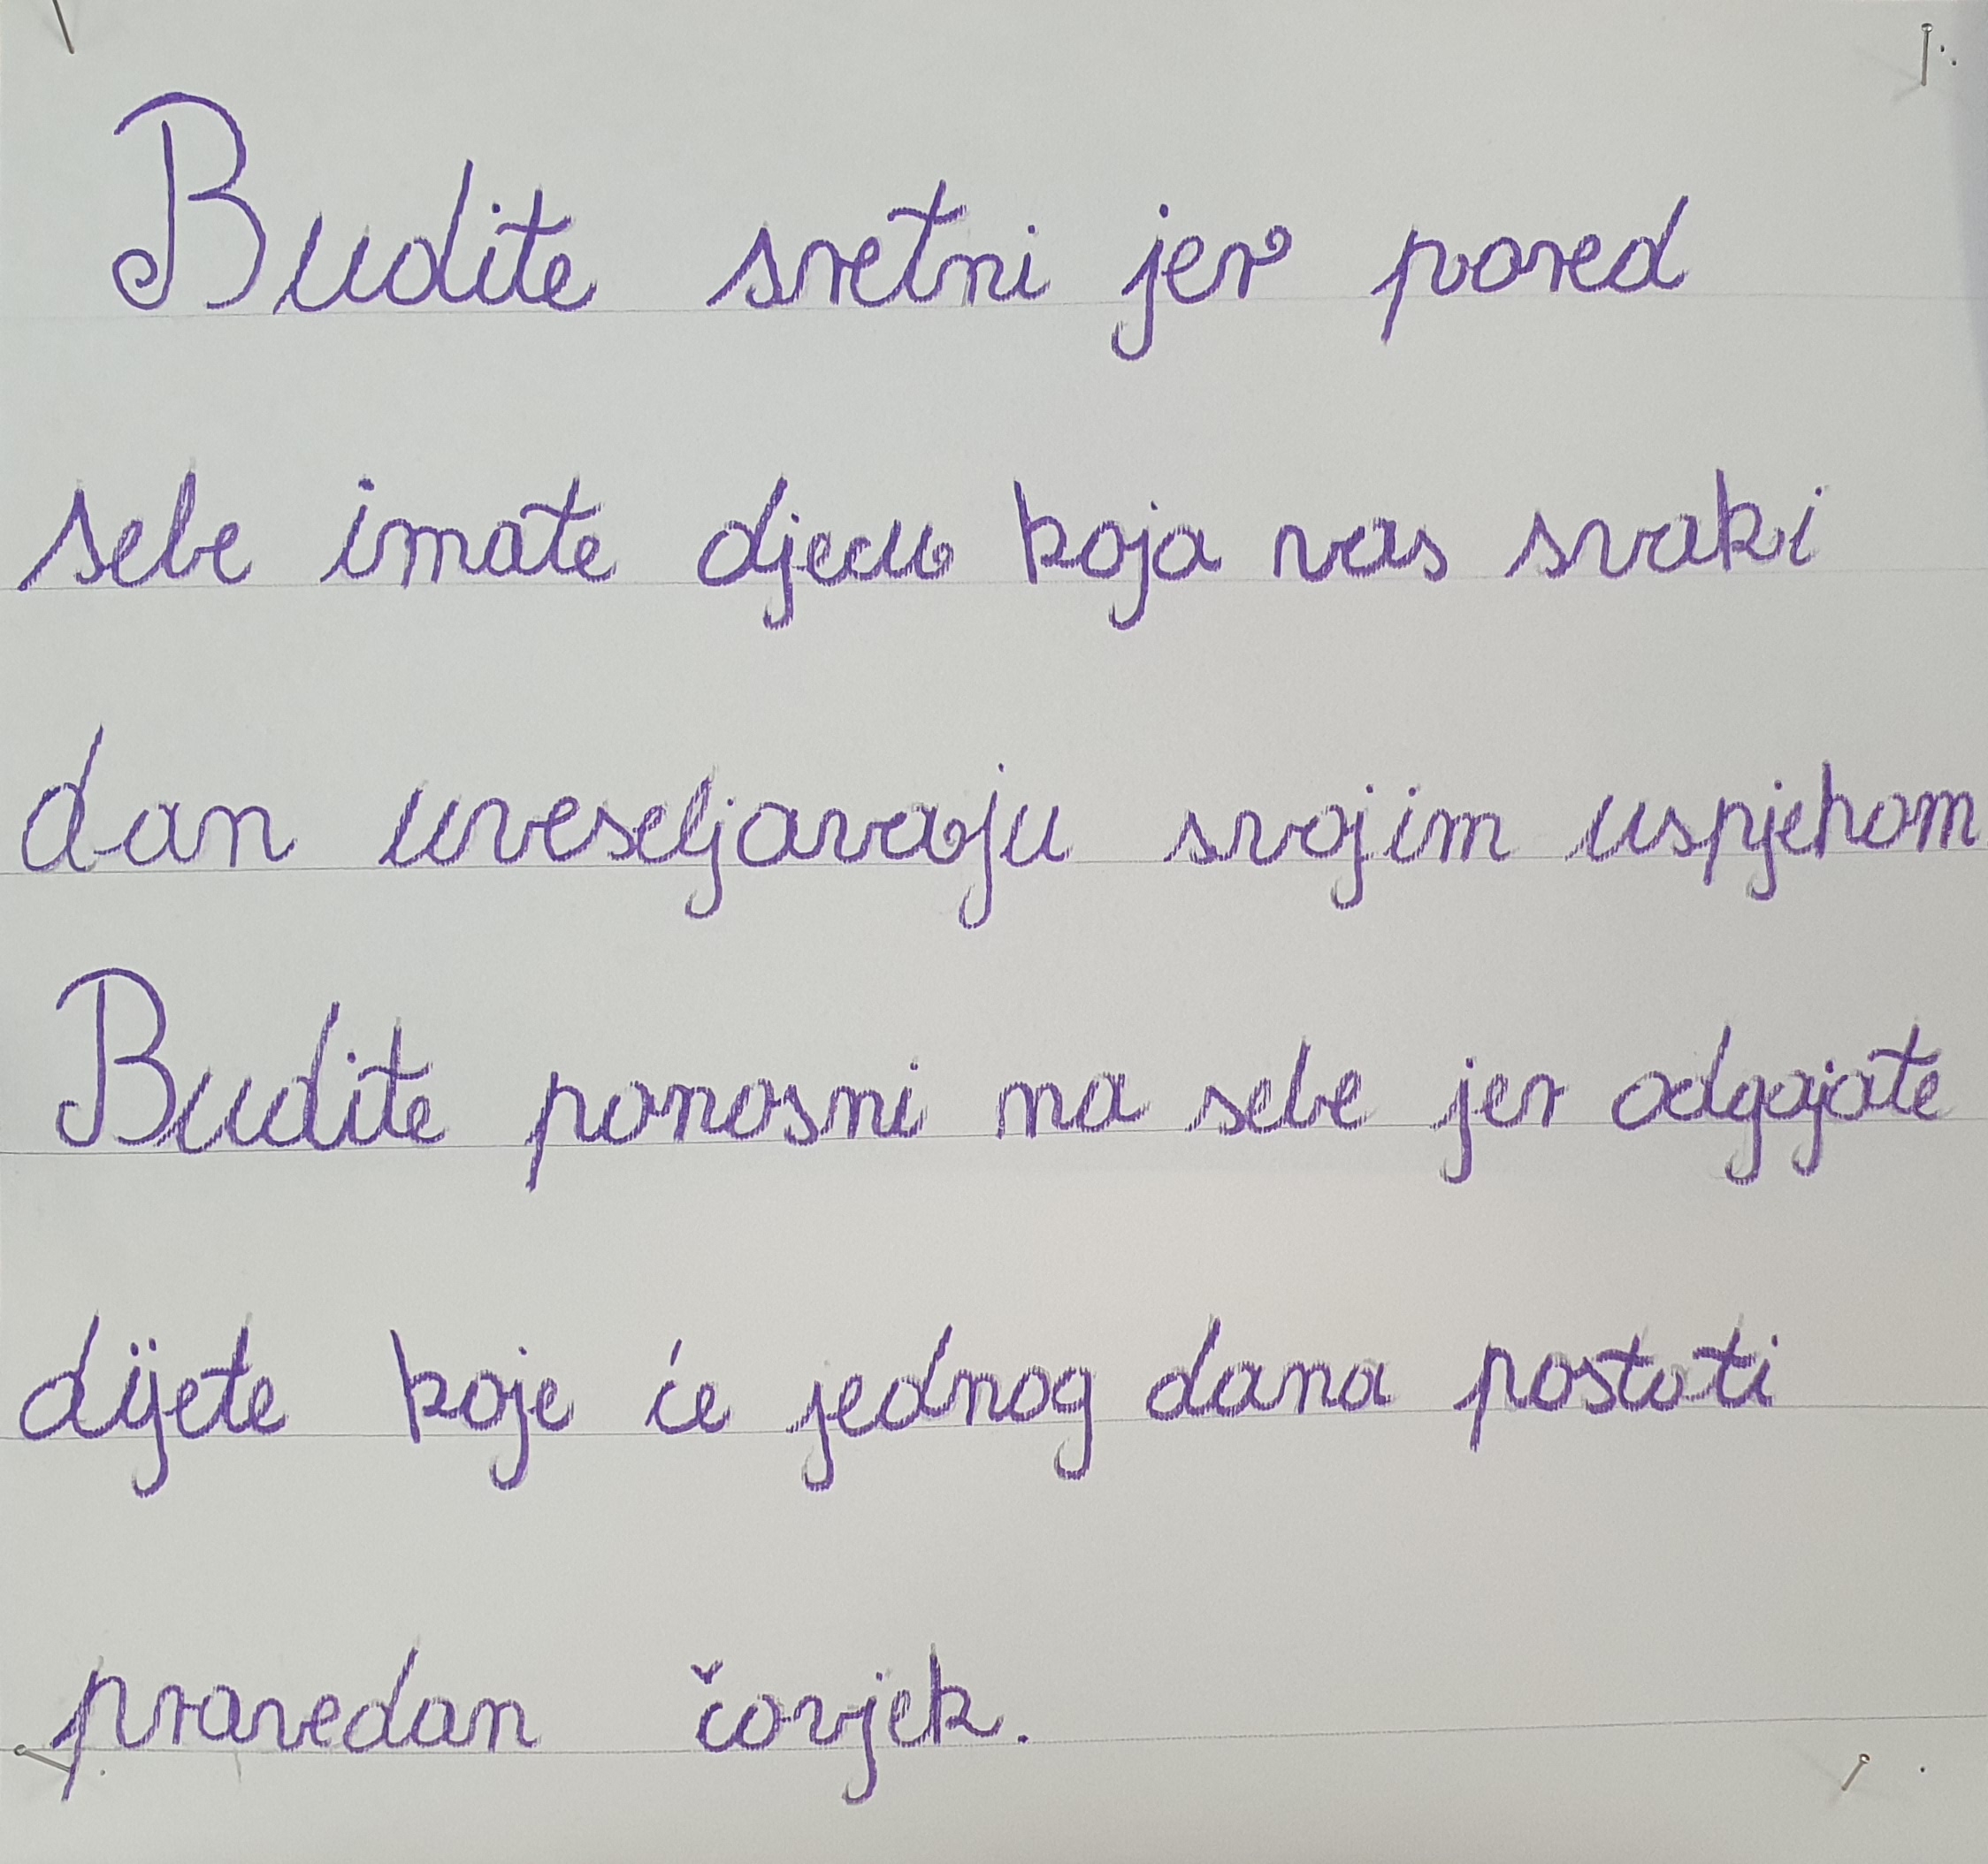 Budite sretni jer pored
sebe imate djecu koja vas svaki
dan uveseljavaju svojim uspjehom
Budite ponosni na sebe jer odgajate
dijete koje će jednog dana postati
pravedan čovjek.